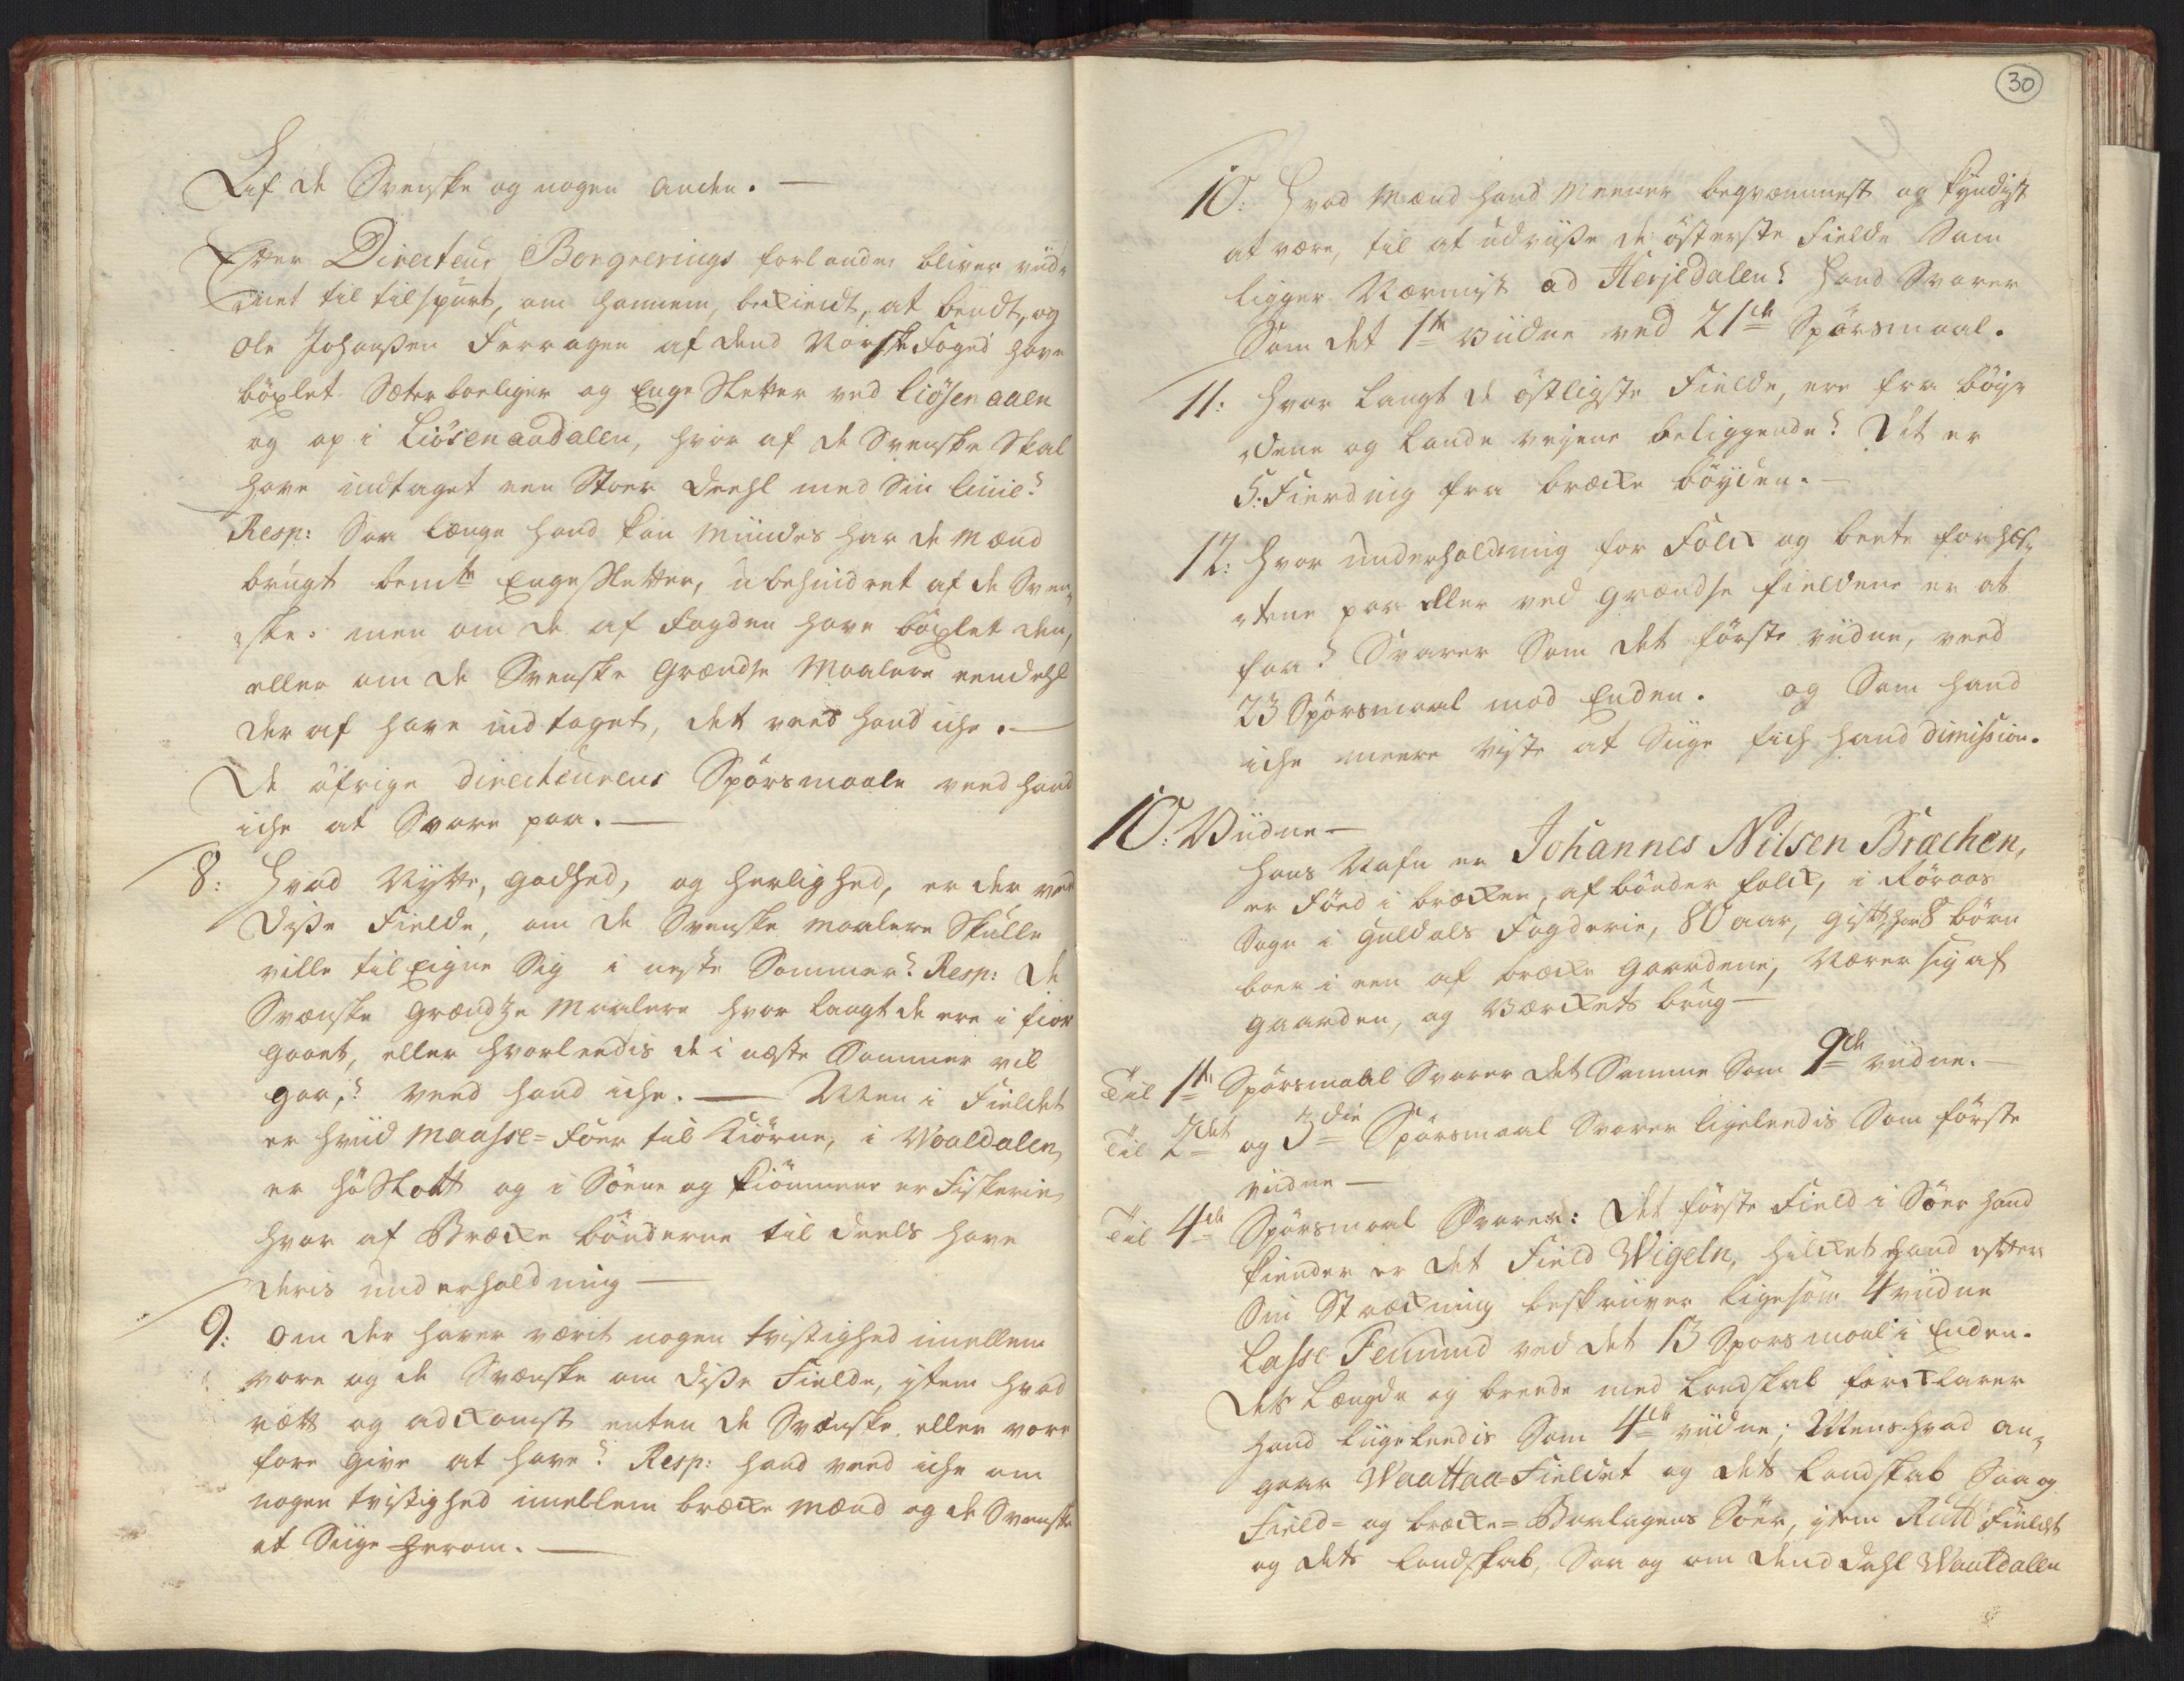 Lif de Svenske og nogen anden. —
Efter Directeur Borgrevings forlande, bliver vid-
net til tilspurt, om hannem, bekiendt, at bendt, og
Ole Johanßen Ferragen af dend Norske Foged have
böxlet Sæterboeliger og Enge Sletter ved Liösen aaen
og op i Liösenaadalen, hvor af de Svenske Skal
have indtaget een Stoer Deehl med Sin linie?
Resp: Saa længe hand kan mindes har de Mænd
brugt bemte Engesletter, ubehindret af de Sven-
ske: men om de af Fogden have böxlet den,
eller om de Svenske Grændse Maalere eendehl
der af have indtaget, det veed hand iche. —
De öfrige directeurens Spörsmaale veed hand
iche at Svare paa. —
8: Hvad Nÿtte, godhed, og herlighed, er der ved
diße Fielde, om de Svenske maalere Skulle
ville tilEigne Sig i neste Sommer? Resp: De
Svenske Grændtze Maalere hvor langt de ere i fior
gaaet, eller hvorleedis de i næste Sommer vil
gaa,? veed hand iche. — Men i Fieldet
er hviid Maasse= Foer til Kiörne, i Waaldalen,
er höSlaatt og i Söene og Kiönnene er Fiskerie,
hvor af Bræcke bönderne til deels have
deris underholdning —
9: om der haver værit nogen tvistighed imellem
vore og de Svenske om diße Fielde, item hvad
rætt og adkomst enten de Svenske eller vore
fore give at have? Resp: hand veed iche om
nogen tvistighed imellem bræcke mænd og de Svenske
at Siige herom. —
30
10: Hvad Mænd hand Meener beqvæmmest og kÿndigst
at være, til at udviiße de österste Fielde Som
ligger Nærmist ad Herjedalen? Hand Svarer
Som det 1te Viidne ved 21de Spörsmaal.
11: Hvor langt de östligste Fielde, ere fra böÿg-
dene og lande veÿene beliggende? Det er
5. Fierding fra bræcke böÿden. —
12: Hvor underholdning for Folck og beete for hæs-
tene paa eller ved grændse fieldene er at
faa? Svarer Som det förste viidne, veed
23 Spörsmaal mod Enden. og Som hand
iche meere viste at Siige fich hand dimission.
10: Viidne —
hans Nafn er Johannes Nilsen Bræchen,
er Föed i bræcken, af bönder folck, i Röraas
Sogn i Guldals Fogderie, 80 aar, gift, har 8 börn
boer i een af bræcke gaardene, Nærer sig af
gaarden, og Værckets brug —
Til 1te Spörsmaal Svarer det Samme Som 9de viidne. —
Til 2det og 3die Spörsmaal Svarer ligeleedis Som förste
viidne —
Til 4de Spörsmaal Svarer: Det förste Field i Söer hand
kiender er det Field Wigeln, hilcket hand efter
Sin Strækning beskriiver ligesom 4 viidne
Lasse Femund ved det 13 Spörsmaal i Enden.
Dets Længde og breede med Landskab forklarer
hand liigeleedis Som 4de viidne; Mens hvad an-
gaar Waattaa=Fieldet og dets Landskab Saa og
Field= og bræcke= Borlagens Söer, item Rutt Fieldet
og dets landskab, Saa og om dend dahl Wauldalen